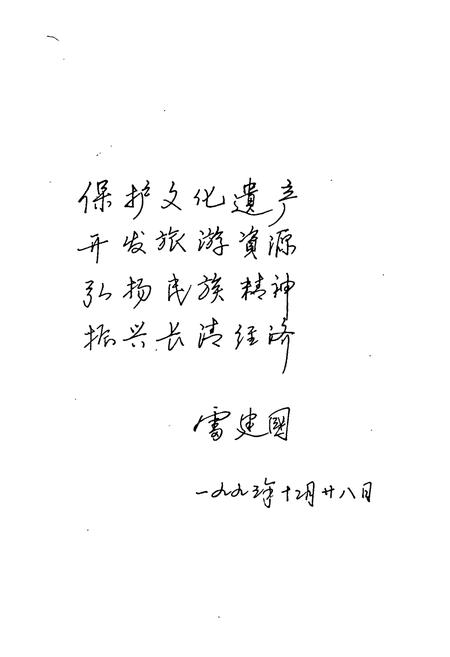 保护文化遺产
开发旅游資源
弘扬民族精神
振兴长清经济
雷建國
一九九三年十二月廿八日